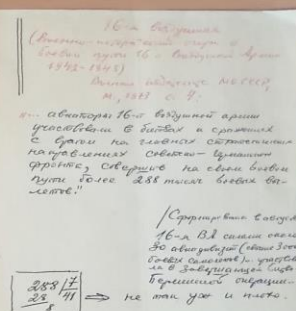 16-я воздушная
(Военно-исторический очерк о
боевом пути 16-й Воздушной Армии
1942-1945)
Военное издательство МО СССР,
М., 1973 с. 4.
"... авиаторы 16-й воздушной армии
участвовали в битвах и сражениях
с врагом на главных стратегических
направлениях советско-германского
фронта, совершив на своём боевом
пути более 288 тысяч боевых вы-
летов."
/Сформирована в августе
16-я ВА
30 авиадивизий (свыше 3000
боевых самолётов) и участвова-
ла в завершающей
Берлинской операции-
288 | 7
28 41
8
⇒ не так уж и плохо.